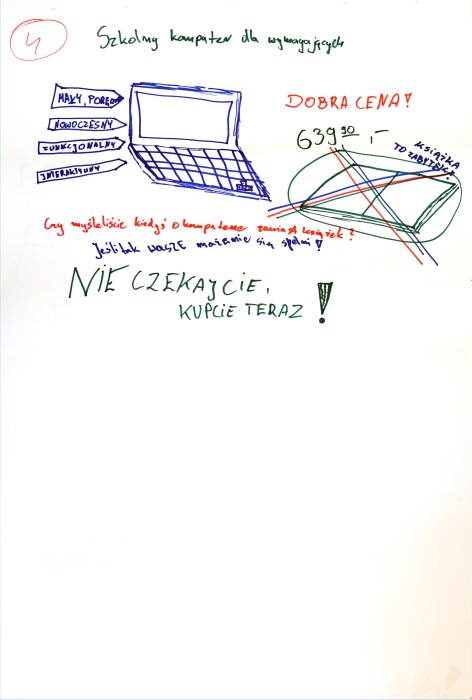 4
Szkolny komputer dla wymagających
MAŁY, PORĘCZ
NOWOCZESNY
FUNKCJONALNY
INTERAKTYWNY
DOBRA CENA!
639 90 ,-
KSIĄŻKA
TO ZABYTEK!
Czy myśleliście kiedyś o komputerze zamiast książek?
Jeśli tak wasze marzenie się spełni!
NIE CZEKAJCIE,
KUPCIE TERAZ !